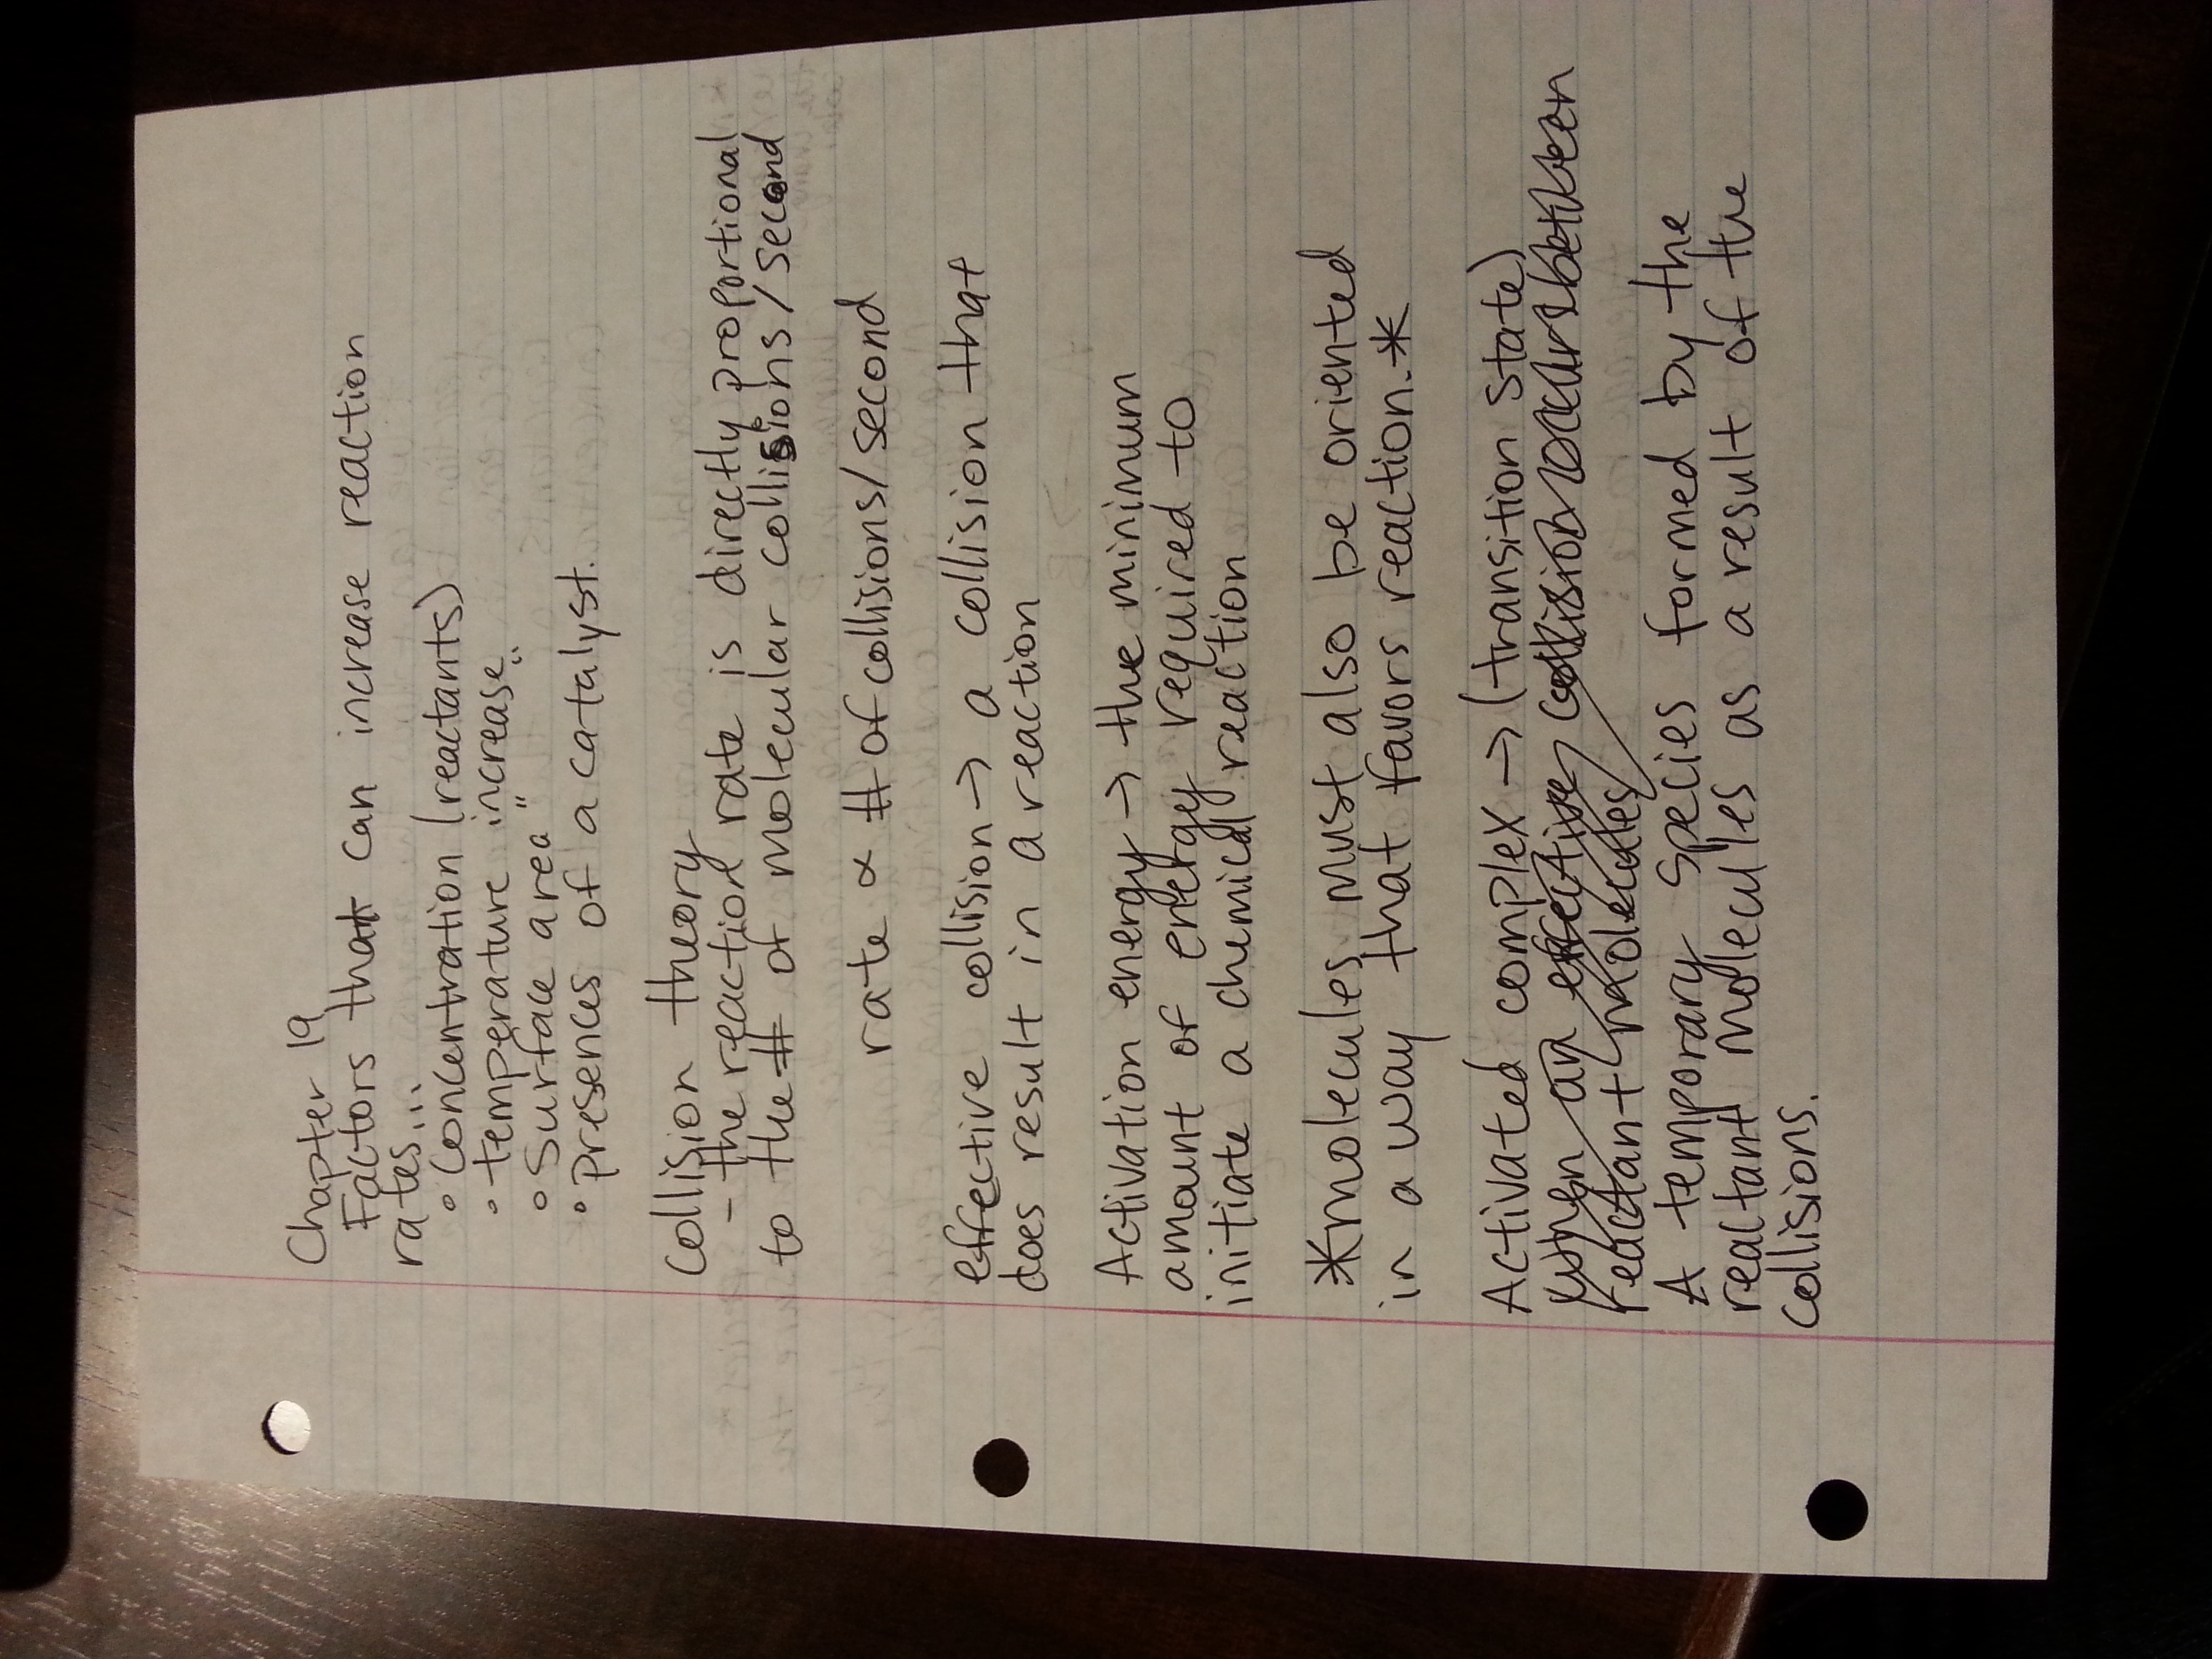 Chapter 19
Factors that can increase reaction
rates...
• Concentration (reactants)
• temperature increase
• Surface area " "
• presences of a catalyst.
Collision theory
- the reaction rate is directly proportional
to the # of molecular collisions/second
rate ∝ # of collisions/second
effective collision → a collision that
does result in a reaction
Activation energy → the minimum
amount of energy required to
initiate a chemical reaction
*molecules must also be oriented
in a way that favors reaction.*
Activated complex → (transition state)
when an effective collision occurs between
reactant molecules
A temporary species formed by the
reactant molecules as a result of the
collisions.